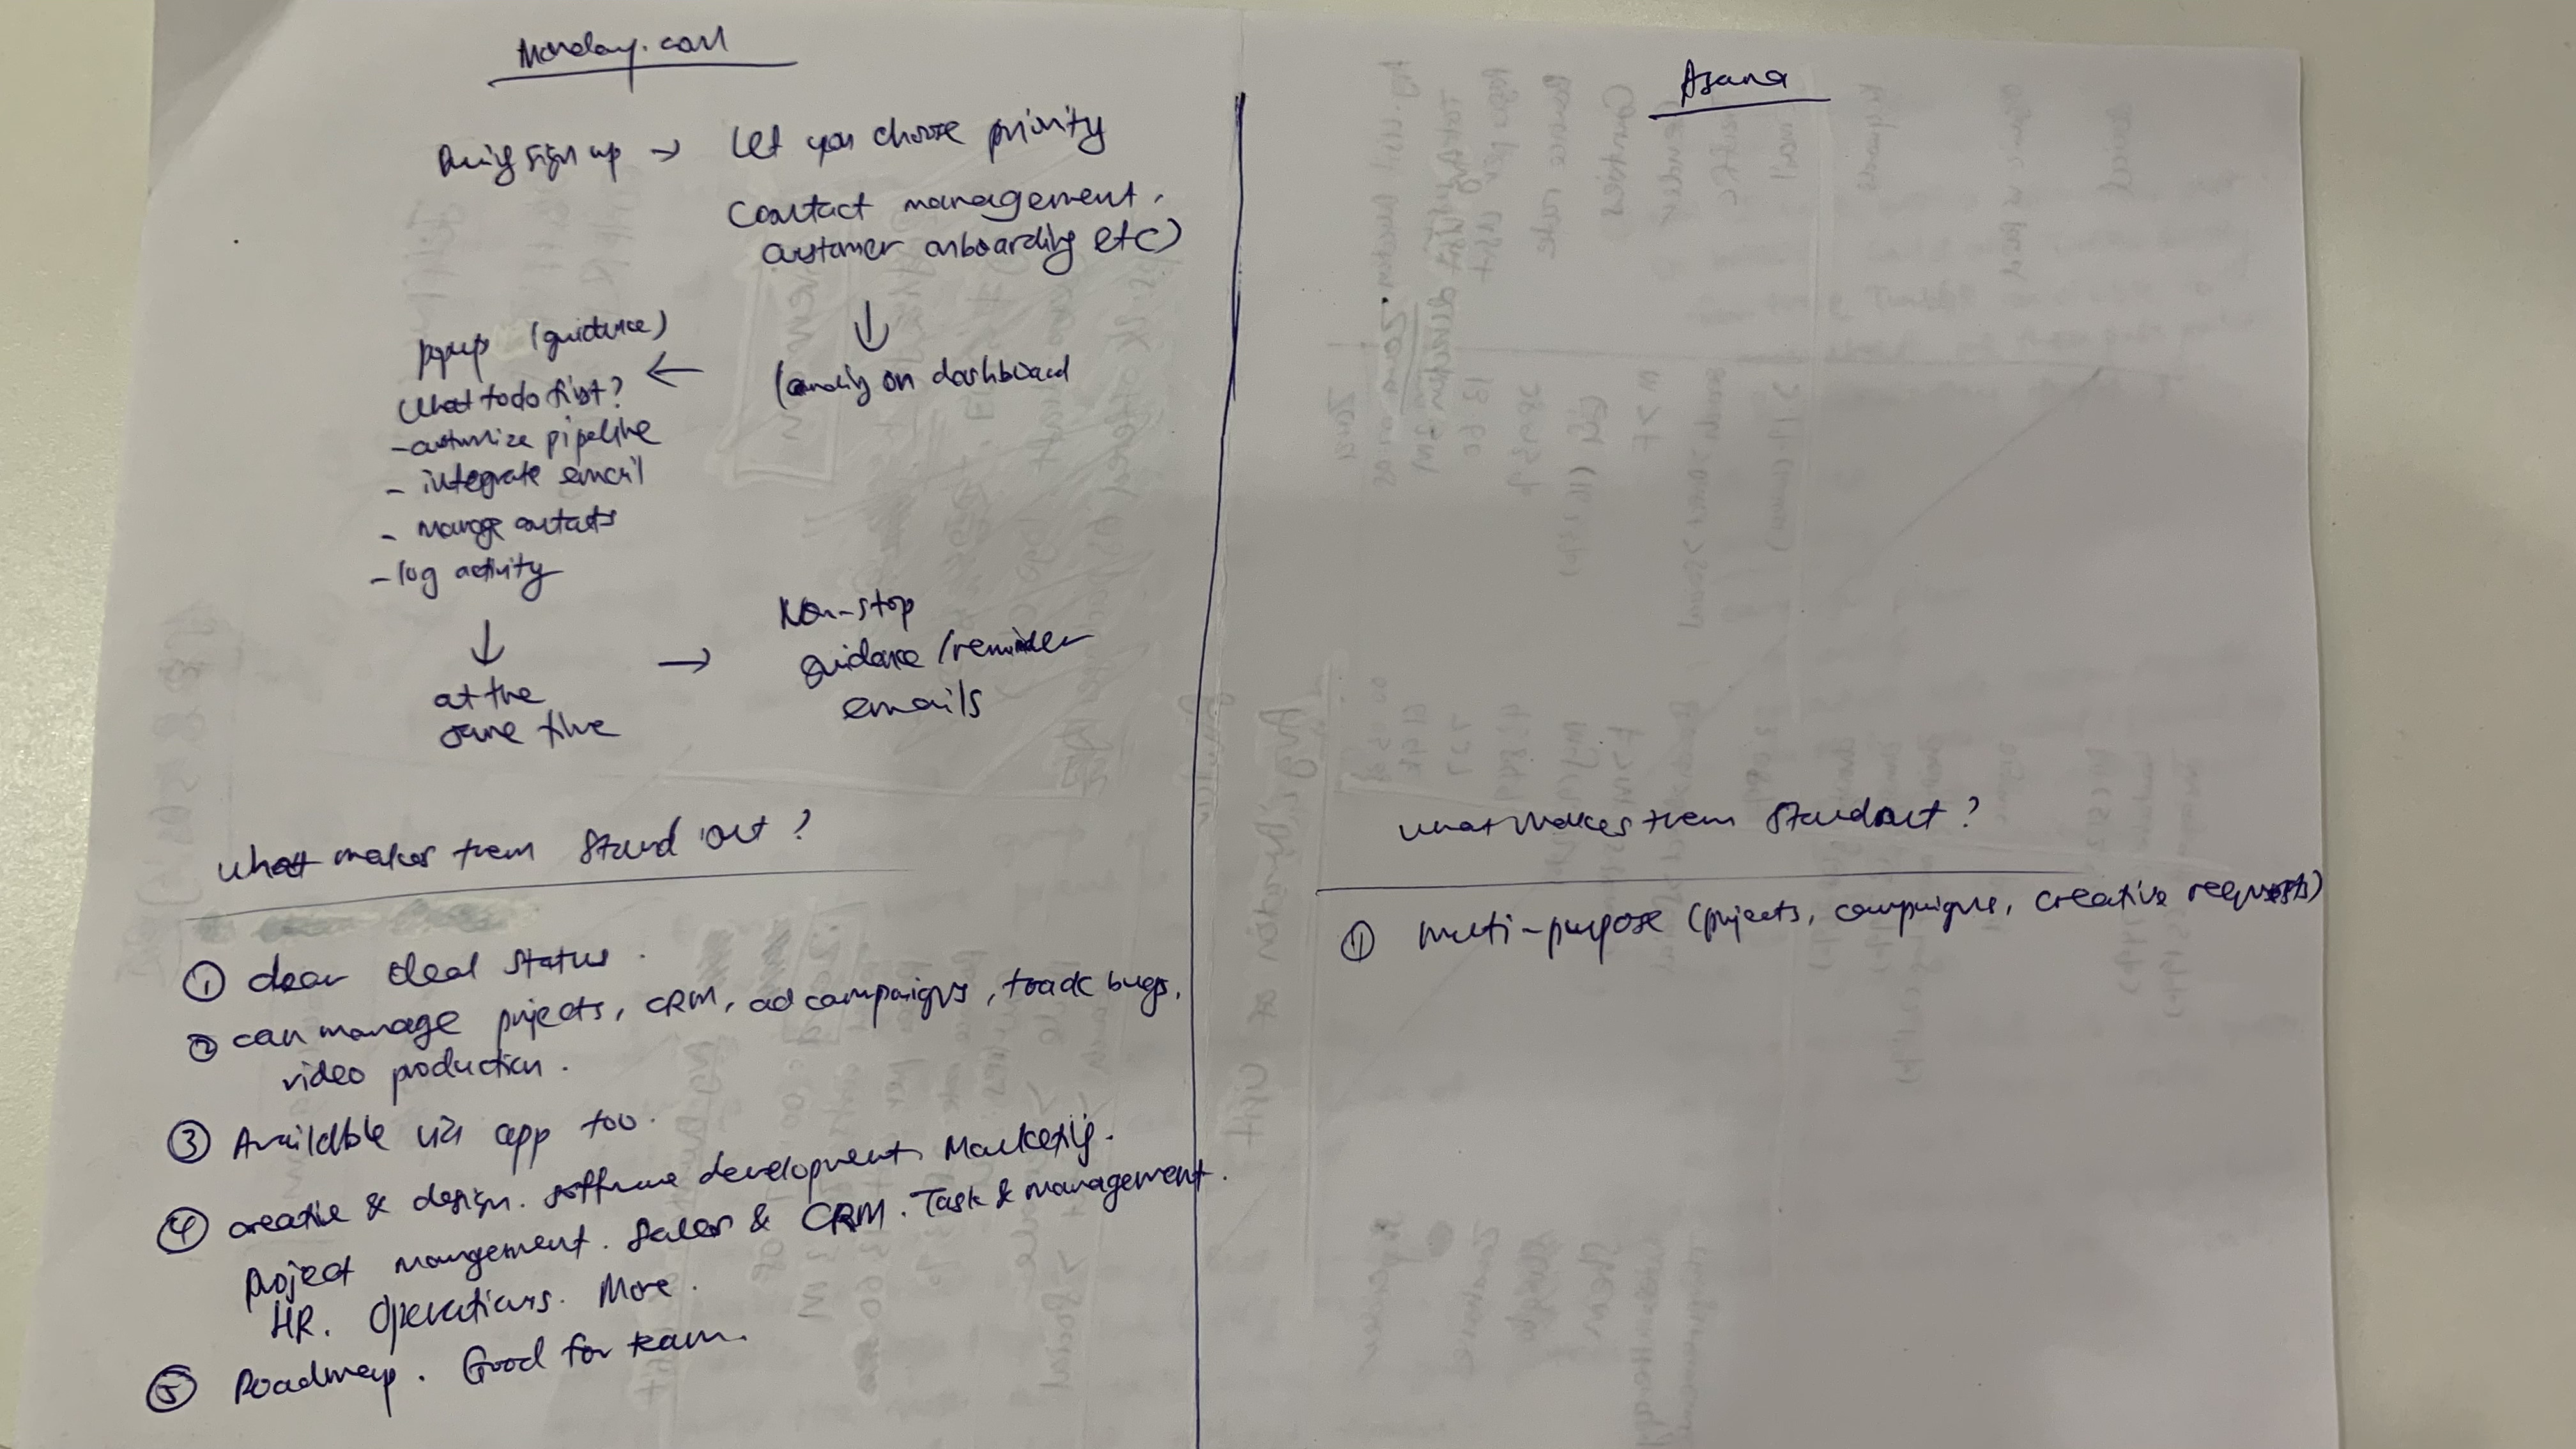 Monday.com
During sign up → Let you choose priority
Contact management,
customer onboarding etc)
↓
(landing on dashboard
←
popup (guidance)
What to do first?
- customize pipeline
- integrate email
- manage contacts
- log activity
↓
at the
same time
→
Non-stop
guidance/reminder
emails
What makes them stand out?
① clear deal status.
② can manage projects, CRM, ad campaigns, track bugs,
video production.
③ Available via app too.
④ creative & design. software development. Marketing.
Project management. Sales & CRM. Task & management.
HR. Operations. More.
⑤ Roadmap. Good for team.
Asana
What makes them stand out?
① multi-purpose (projects, campaigns, creative requests)